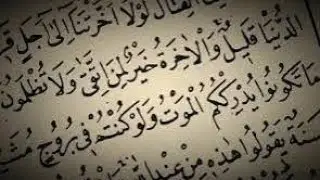 الْقِتَالَ لَوْلَا أَخَّرْتَنَا إِلَىٰ أَجَلٍ قَ
الدُّنْيَا قَلِيلٌ وَالْآخِرَةُ خَيْرٌ لِمَنِ اتَّقَىٰ وَلَا تُظْلَمُونَ
مَا تَكُونُوا يُدْرِكْكُمُ الْمَوْتُ وَلَوْ كُنْتُمْ فِي بُرُوجٍ مُشَ
سَنَةٌ يَقُولُوا هَٰذِهِ مِنْ عِنْدِ